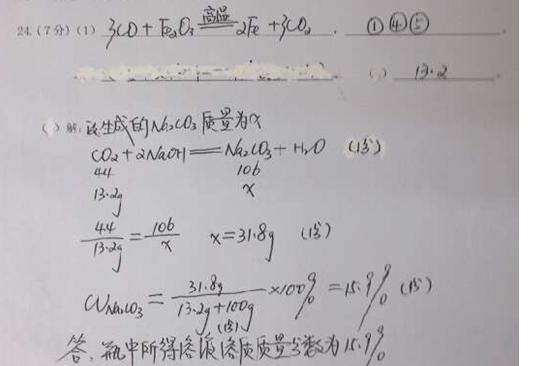 24.(7分)(1) 3CO + Fe₂O₃ 高温 2Fe + 3CO₂ . ①④⑤ .
( ) 13.2 .
( ) 解: 设生成的Na₂CO₃质量为x
CO₂ + 2NaOH = Na₂CO₃ + H₂O (1分)
44 106
13.2g x
44/13.2g = 106/x x = 31.8g (1分)
ωNa₂CO₃ = 31.8g/(13.2g+100g) ×100% = 15.9% (1分)
(1分)
答: 瓶中所得溶液溶质质量分数为15.9%